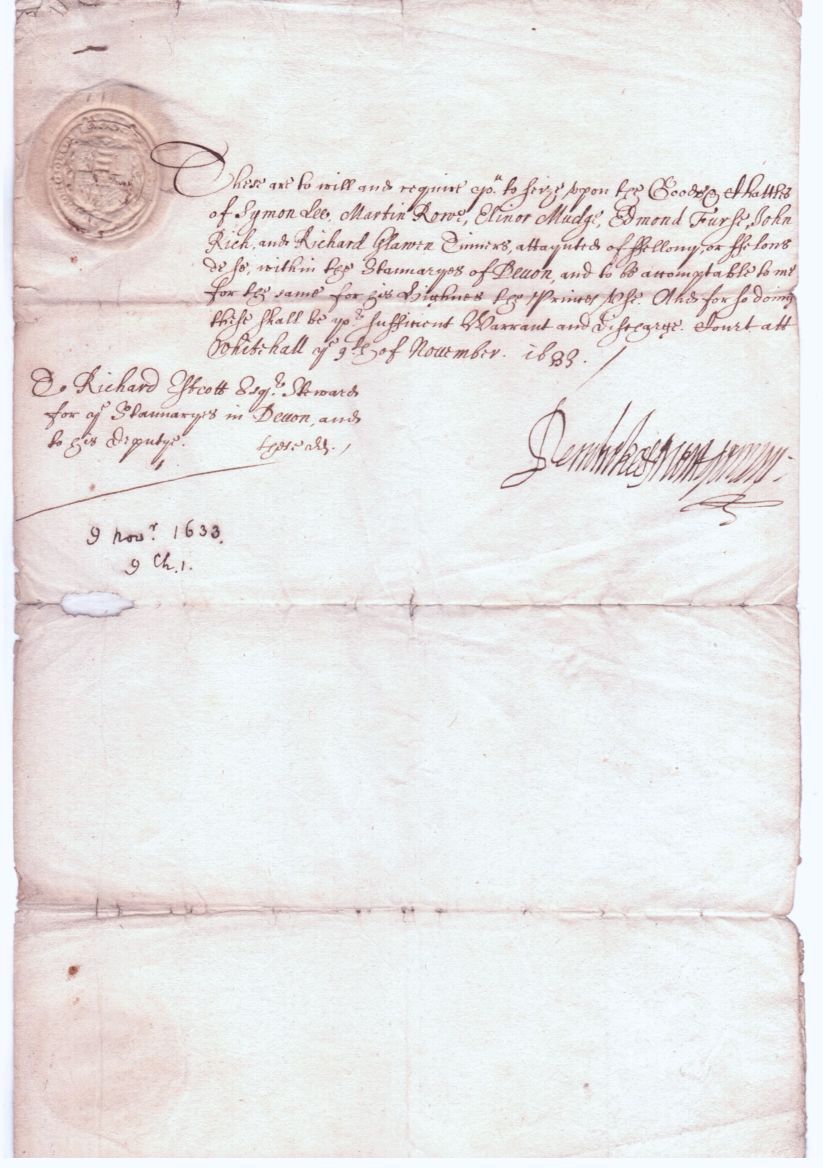 These are to will and require yo.u to seize upon the Goods & Chattles
of Symon Lee, Martin Rowe, Elinor Mudge, Edmond Furse, John
Rich, and Richard Glawen Tinners, attaynted of ffellony, or ffelons
de se, within the Stannaryes of Devon, and to be accomptable to me
for the same for his Highnes the Princes use. And for so doing
these shall be yo.r sufficient Warrant and discharge. Court att
Whitehall ye 9.th of November. 1633.
To Richard Estcott Esq.r Steward
for ye Stannaryes in Devon, and
to his deputye. these dd.
9 nov.r 1633.
9 Ch. 1.